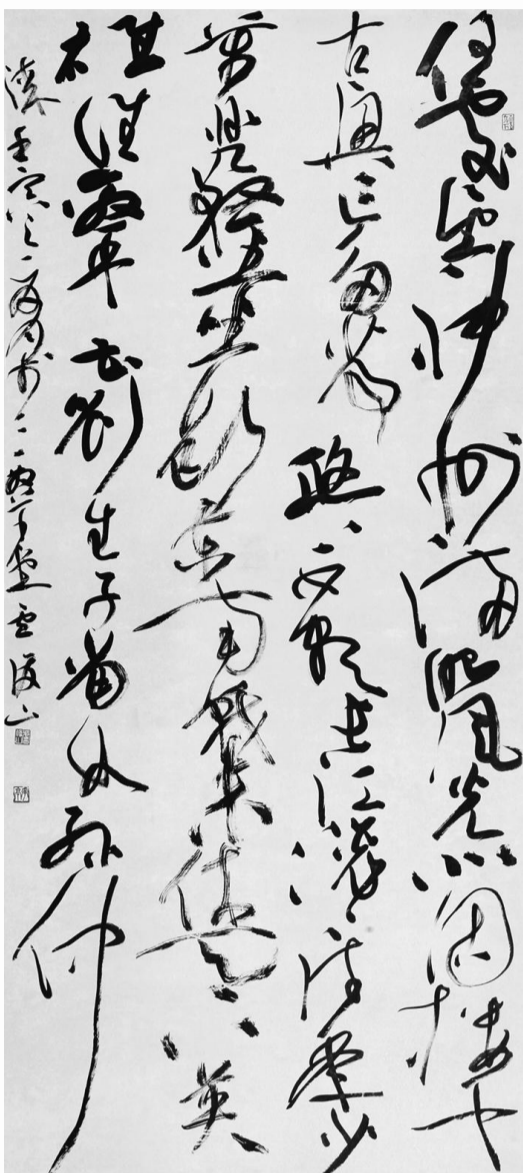 何處望神州滿眼風光北固樓千
古興亡多少事悠悠不盡長江滾滾流年少
萬兜鍪坐斷東南戰未休天下英
雄誰敵手曹劉生子當如孫仲
謀壬寅之二月於二一